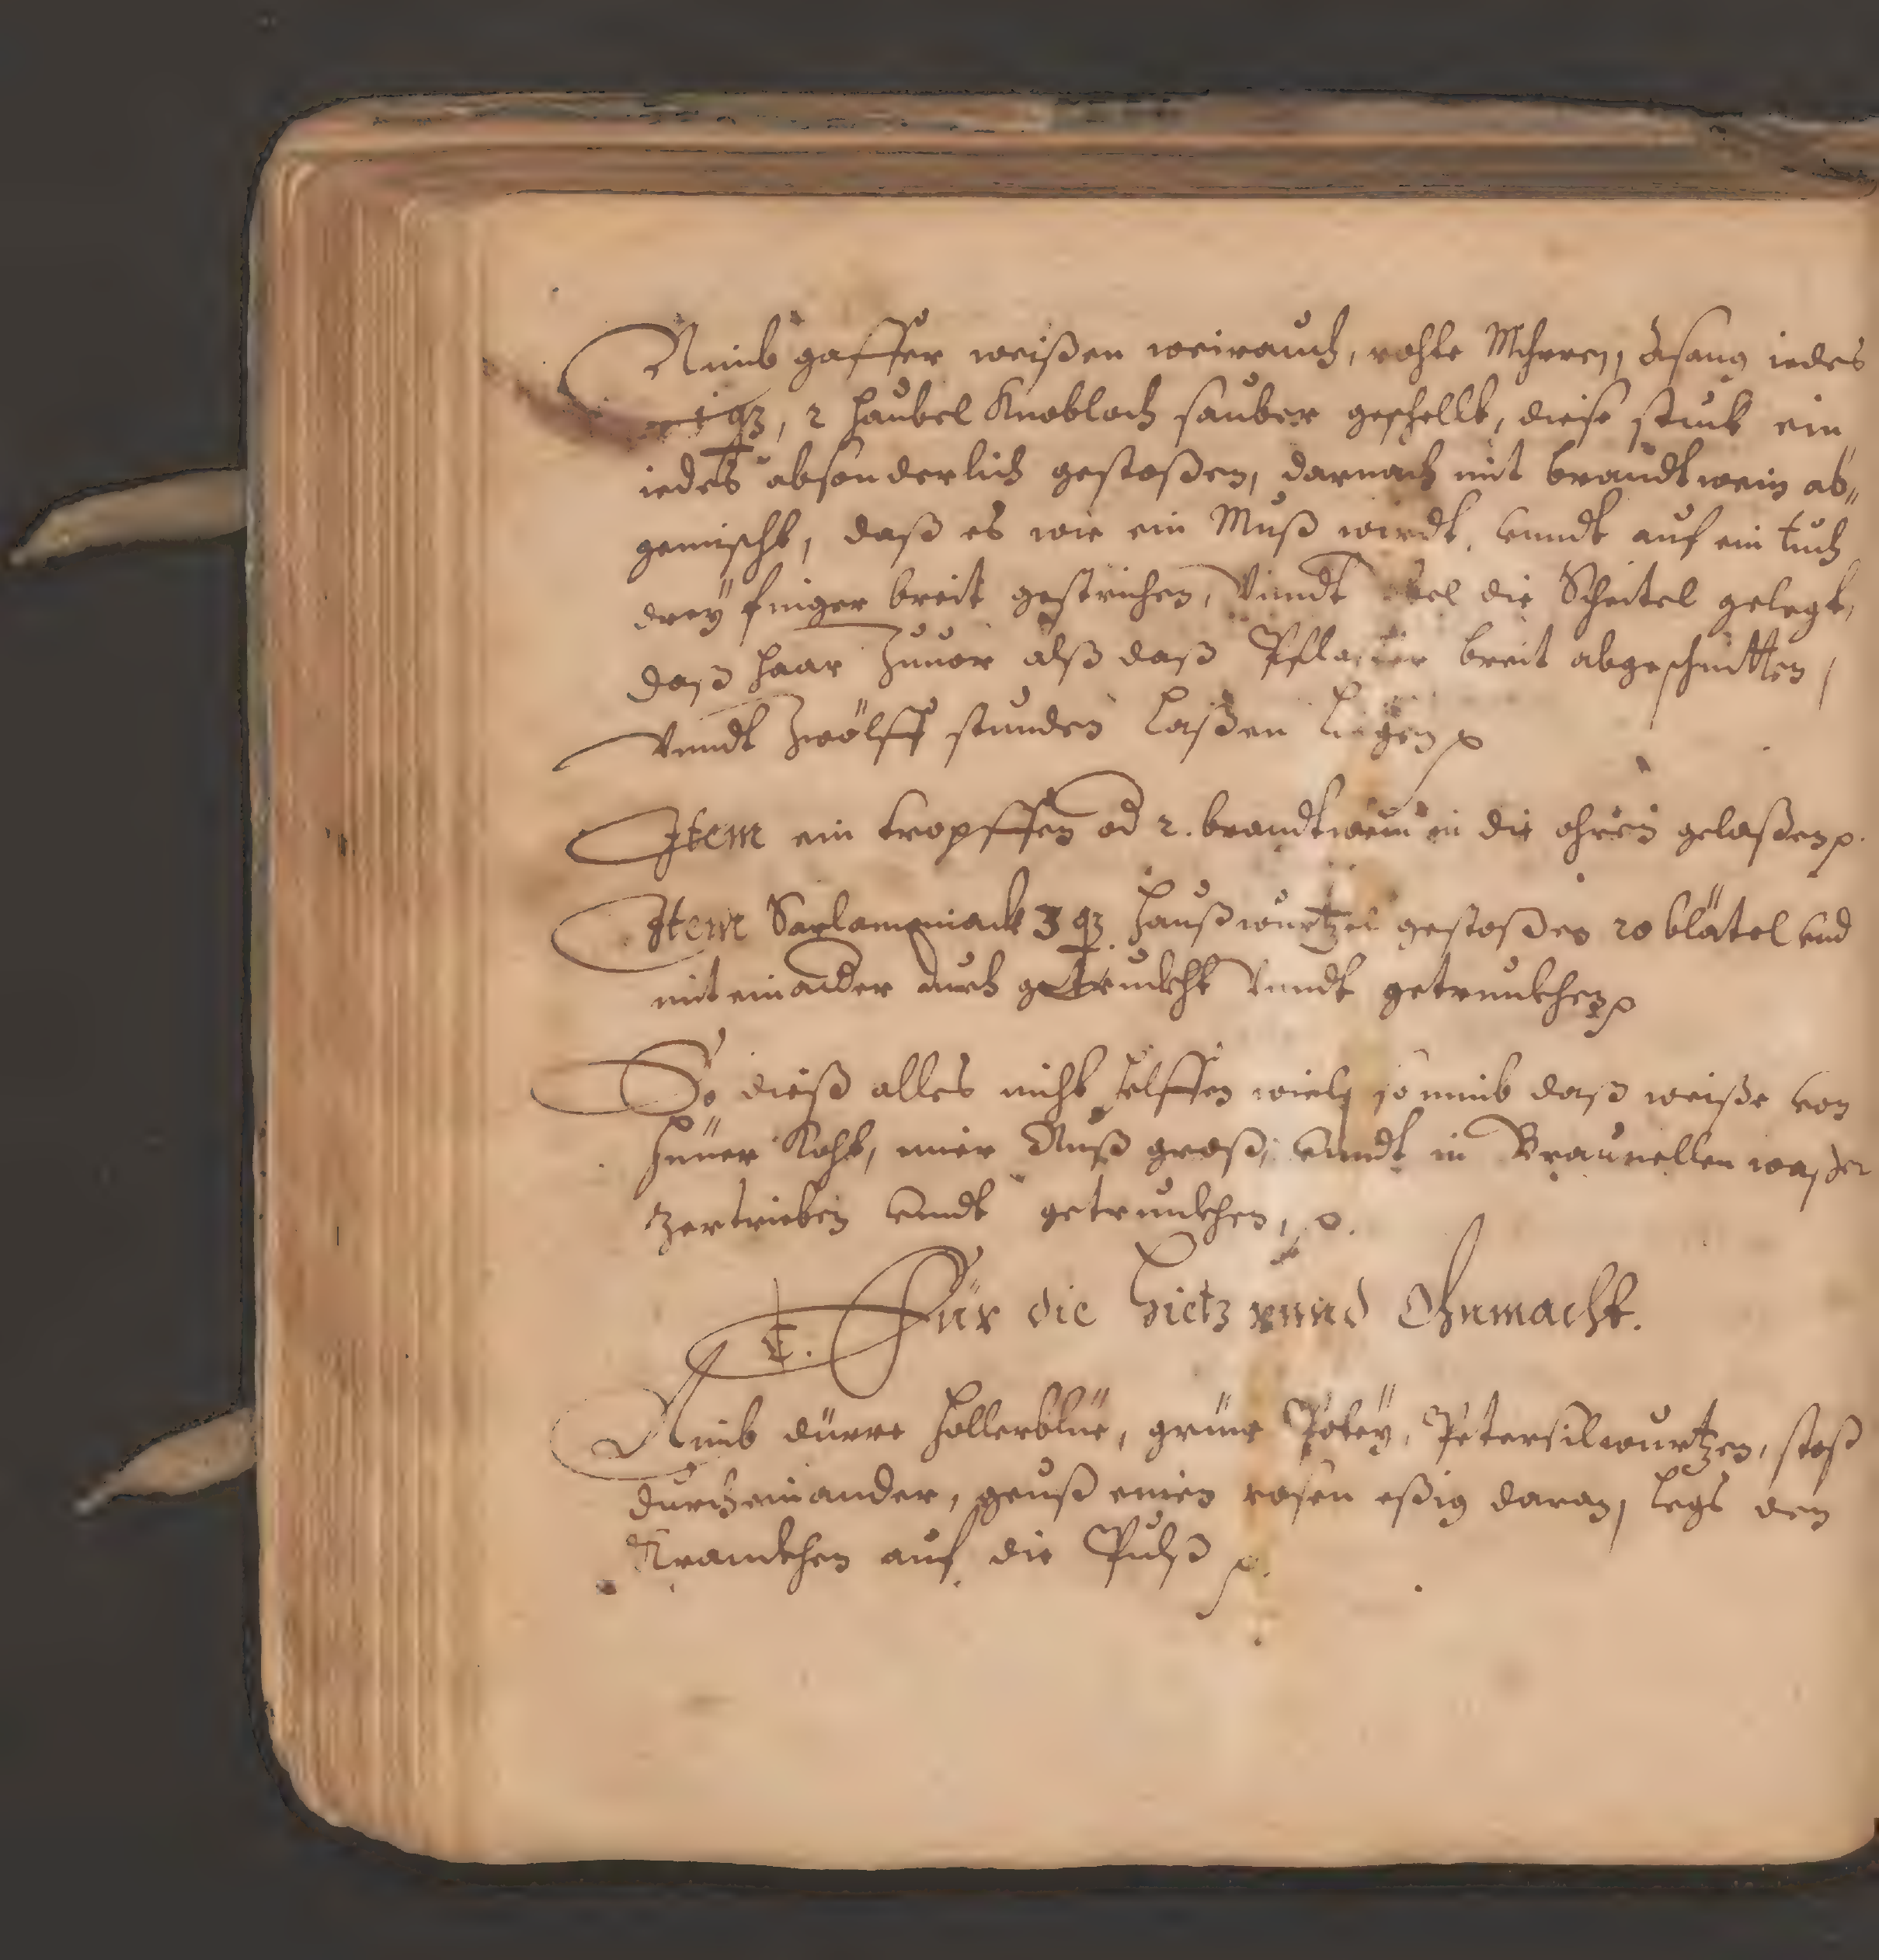 Nimb gaffer weißen weirauch, rohte Mihrren, Asang iedes
1 q̃, 2 haubel Knobloch sauber geschellt, diese stuck ein
iedes absonderlich gestoßen, darnach mit brandtwein ab„
gemischt, daß es wie ein Muß wirdt, vnndt auf ein tuch
dreÿ finger breit gestrichen, Vnndt die Scheitel gelegt,
daß haar Zuuor alß daß Pflaster breit abgeschnitten,
Vnndt Zwölff stunden laßen ligen
Item ein tropffen od 2. brandtwein in die ohren gelaßen.
Item Sarlamoniack 3 q̃. haußwurtzel gestoßen 20 blätel vnd
mit einander durch getruckht Vnndt getrunkhen
So dieß alles nicht helffen wiel, so nimb daß weiße von
hüner Koht, einer Nuß groß, vnndt in Braunellen waßer
zertrieben vnndt getrunkhen,
Für die hietz vnnd Ohnmacht.
Nimb dürre hollerblüe, grüne Poleÿ, Petersilwurtzen, stoß
durcheinander, geuß einen rosen eßig daran, legs den
Krankhen auf die Pulß